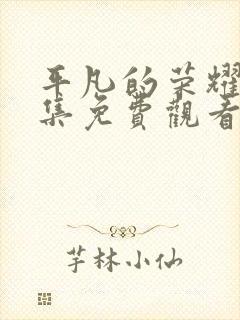 平凡的荣耀
集免費觀看
芋林小仙